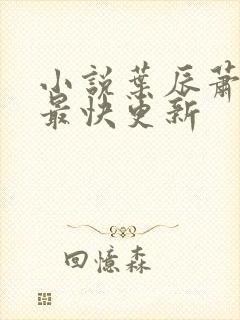 小説葉辰蕭
最快更新
回憶森